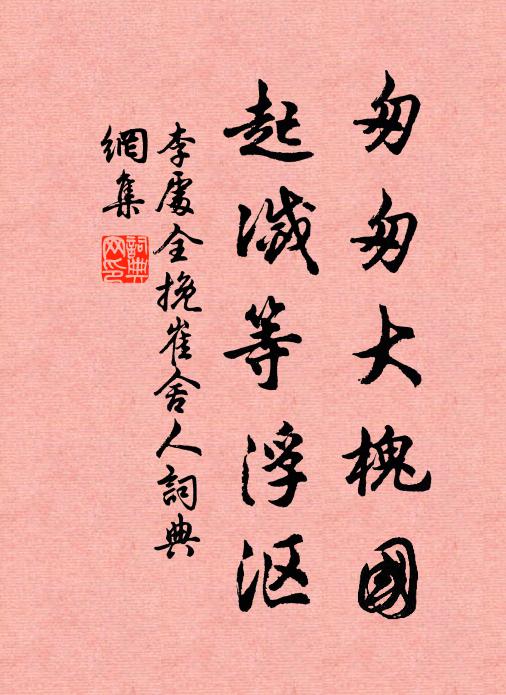 匆匆大槐國
起滅等浮沤
李處全挽崔舍人詞典
網集
詞典網印